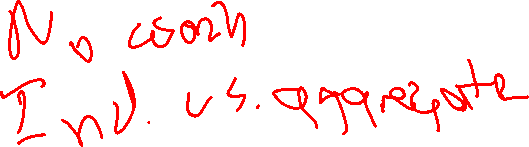 No coach
Ind. vs. aggregate